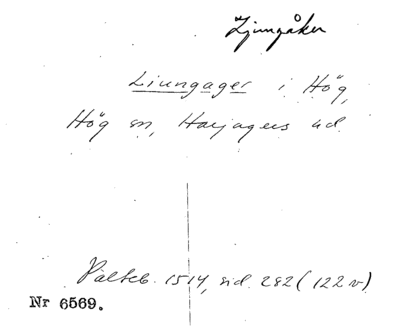 Ljungåker
Liungager i Hög,
Hög sn, Harjagers hd
Palteb. 1514, sid 282 (122 v)
Nr 6569.